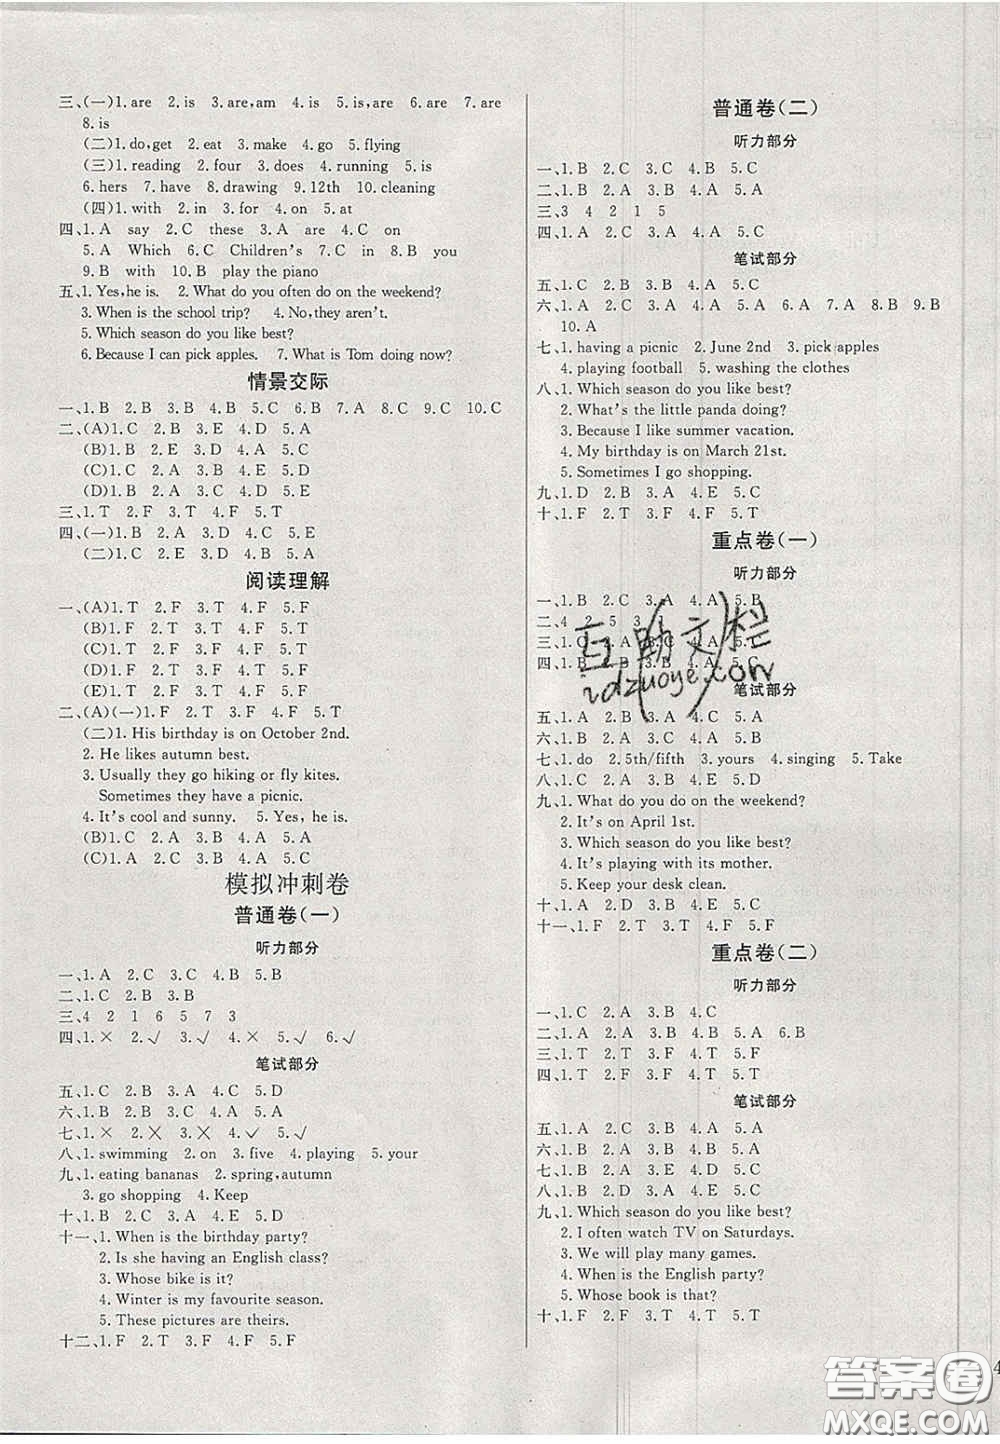 三、(一)1. are 2. is 3. are,am 4. is 5. is,are 6. are 7. are
8. is
(二)1. do,get 2. eat 3. make 4. go 5. flying
(三)1. reading 2. four 3. does 4. running 5. is
6. hers 7. have 8. drawing 9. 12th 10. cleaning
(四)1. with 2. in 3. for 4. on 5. at
四、1. A say 2. C these 3. A are 4. C on
5. A Which 6. C Children's 7. C in 8. B you
9. B with 10. B play the piano
五、1. Yes,he is. 2. What do you often do on the weekend?
3. When is the school trip? 4. No,they aren't.
5. Which season do you like best?
6. Because I can pick apples. 7. What is Tom doing now?
情景交际
一、1. B 2. B 3. B 4. B 5. C 6. B 7. A 8. C 9. C 10. C
二、(A)1. C 2. B 3. E 4. D 5. A
(B)1. B 2. E 3. D 4. A 5. C
(C)1. D 2. B 3. E 4. A 5. C
(D)1. D 2. B 3. E 4. A 5. C
三、1. T 2. F 3. T 4. F 5. T
四、(一)1. B 2. A 3. D 4. C 5. E
(二)1. C 2. E 3. D 4. B 5. A
阅读理解
一、(A)1. T 2. F 3. T 4. F 5. F
(B)1. T 2. F 3. T 4. F 5. F
(C)1. T 2. F 3. T 4. T 5. F
(D)1. T 2. F 3. T 4. F 5. F
(E)1. T 2. T 3. F 4. F 5. F
二、(A)(一)1. F 2. T 3. F 4. F 5. T
(二)1. His birthday is on October 2nd.
2. He likes autumn best.
3. Usually they go hiking or fly kites.
Sometimes they have a picnic.
4. It's cool and sunny. 5. Yes, he is.
(B)1. C 2. A 3. B 4. A 5. C
(C)1. A 2. B 3. A 4. C 5. B
模拟冲刺卷
普通卷(一)
听力部分
一、1. A 2. C 3. C 4. B 5. B
二、1. C 2. B 3. B
三、4 2 1 6 5 7 3
四、1. × 2. √ 3. √ 4. × 5. √ 6. √
笔试部分
五、1. C 2. B 3. A 4. C 5. D
六、1. B 2. B 3. C 4. A 5. A
七、1. × 2. × 3. × 4. √ 5. √
八、1. swimming 2. on 3. five 4. playing 5. your
九、1. eating bananas 2. spring,autumn
3. go shopping 4. Keep
十、1. B 2. C 3. A 4. E 5. D
十一、1. When is the birthday party?
2. Is she having an English class?
3. Whose bike is it?
4. Winter is my favourite season.
5. These pictures are theirs.
十二、1. F 2. T 3. T 4. F 5. F
普通卷(二)
听力部分
一、1. B 2. C 3. C 4. B 5. C
二、1. B 2. A 3. B 4. A 5. A
三、3 4 2 1 5
四、1. A 2. C 3. A 4. A 5. C
笔试部分
五、1. C 2. B 3. A 4. B 5. C
六、1. A 2. C 3. A 4. A 5. A 6. A 7. A 8. B 9. B
10. A
七、1. having a picnic 2. June 2nd 3. pick apples
4. playing football 5. washing the clothes
八、1. Which season do you like best?
2. What's the little panda doing?
3. Because I like summer vacation.
4. My birthday is on March 21st.
5. Sometimes I go shopping.
九、1. D 2. B 3. A 4. E 5. C
十、1. F 2. T 3. F 4. F 5. T
重点卷(一)
听力部分
一、1. B 2. C 3. A 4. A 5. B
二、4 2 5 3 1
三、1. C 2. A 3. C 4. A 5. B
四、1. B 2. B 3. A 4. A 5. C
互助文栏
hdzuoye.com
笔试部分
五、1. A 2. C 3. B 4. B 5. A
六、1. C 2. B 3. C 4. A 5. B
七、1. do 2. 5th/fifth 3. yours 4. singing 5. Take
八、1. C 2. B 3. A 4. E 5. D
九、1. What do you do on the weekend?
2. It's on April 1st.
3. Which season do you like best?
4. It's playing with its mother.
5. Keep your desk clean.
十、1. A 2. D 3. B 4. E 5. C
十一、1. F 2. T 3. T 4. F 5. F
重点卷(二)
听力部分
一、1. C 2. A 3. B 4. C
二、1. A 2. B 3. B 4. B 5. A 6. B
三、1. T 2. T 3. F 4. T 5. T
四、1. T 2. F 3. F 4. T 5. F
笔试部分
五、1. A 2. C 3. B 4. A 5. C
六、1. B 2. A 3. B 4. A 5. B
七、1. C 2. B 3. A 4. B 5. A
八、1. B 2. D 3. C 4. E 5. A
九、1. Which season do you like best?
2. I often watch TV on Saturdays.
3. We will play many games.
4. When is the English party?
5. Whose book is that?
十、1. F 2. F 3. T 4. T 5. T
4
答案圈
MXQE.COM